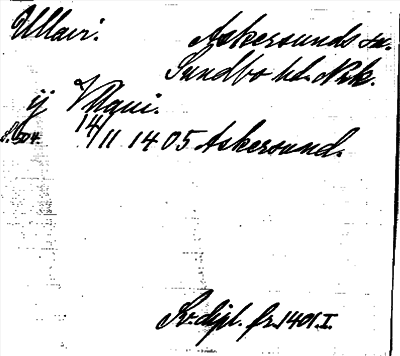 Ullavi. Askersunds sn.
Sundbo hd. Närk.
ij Vllaui.
14/11 1405 Askersund.
Sv. dipl. fr. 1401. I.